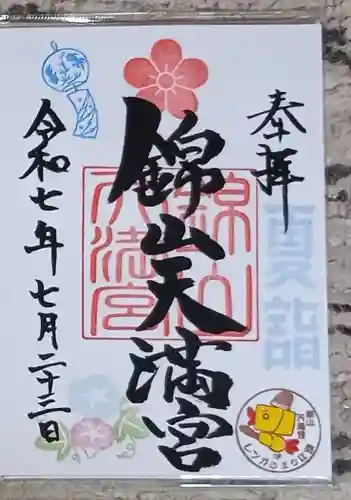 奉拝
夏詣
錦山天満宮
令和七年七月二十三日
錦山
天満宮
レンガのまち江別